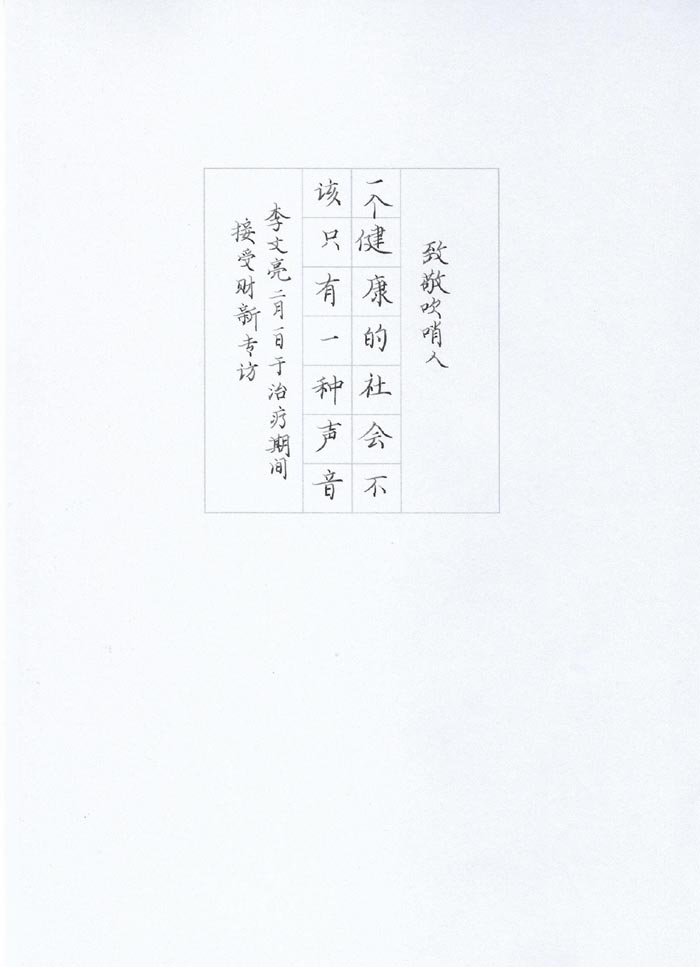 致敬吹哨人
一个健康的社会不
该只有一种声音
李文亮二月一日于治疗期间
接受财新专访